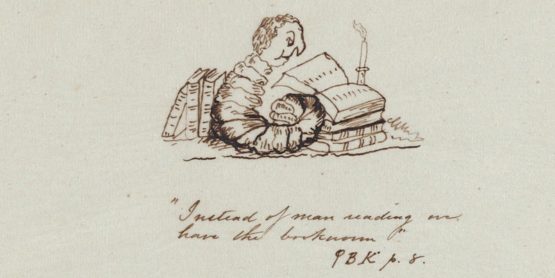 "Instead of man reading we
have the bookworm"
ΦBK p. 8.